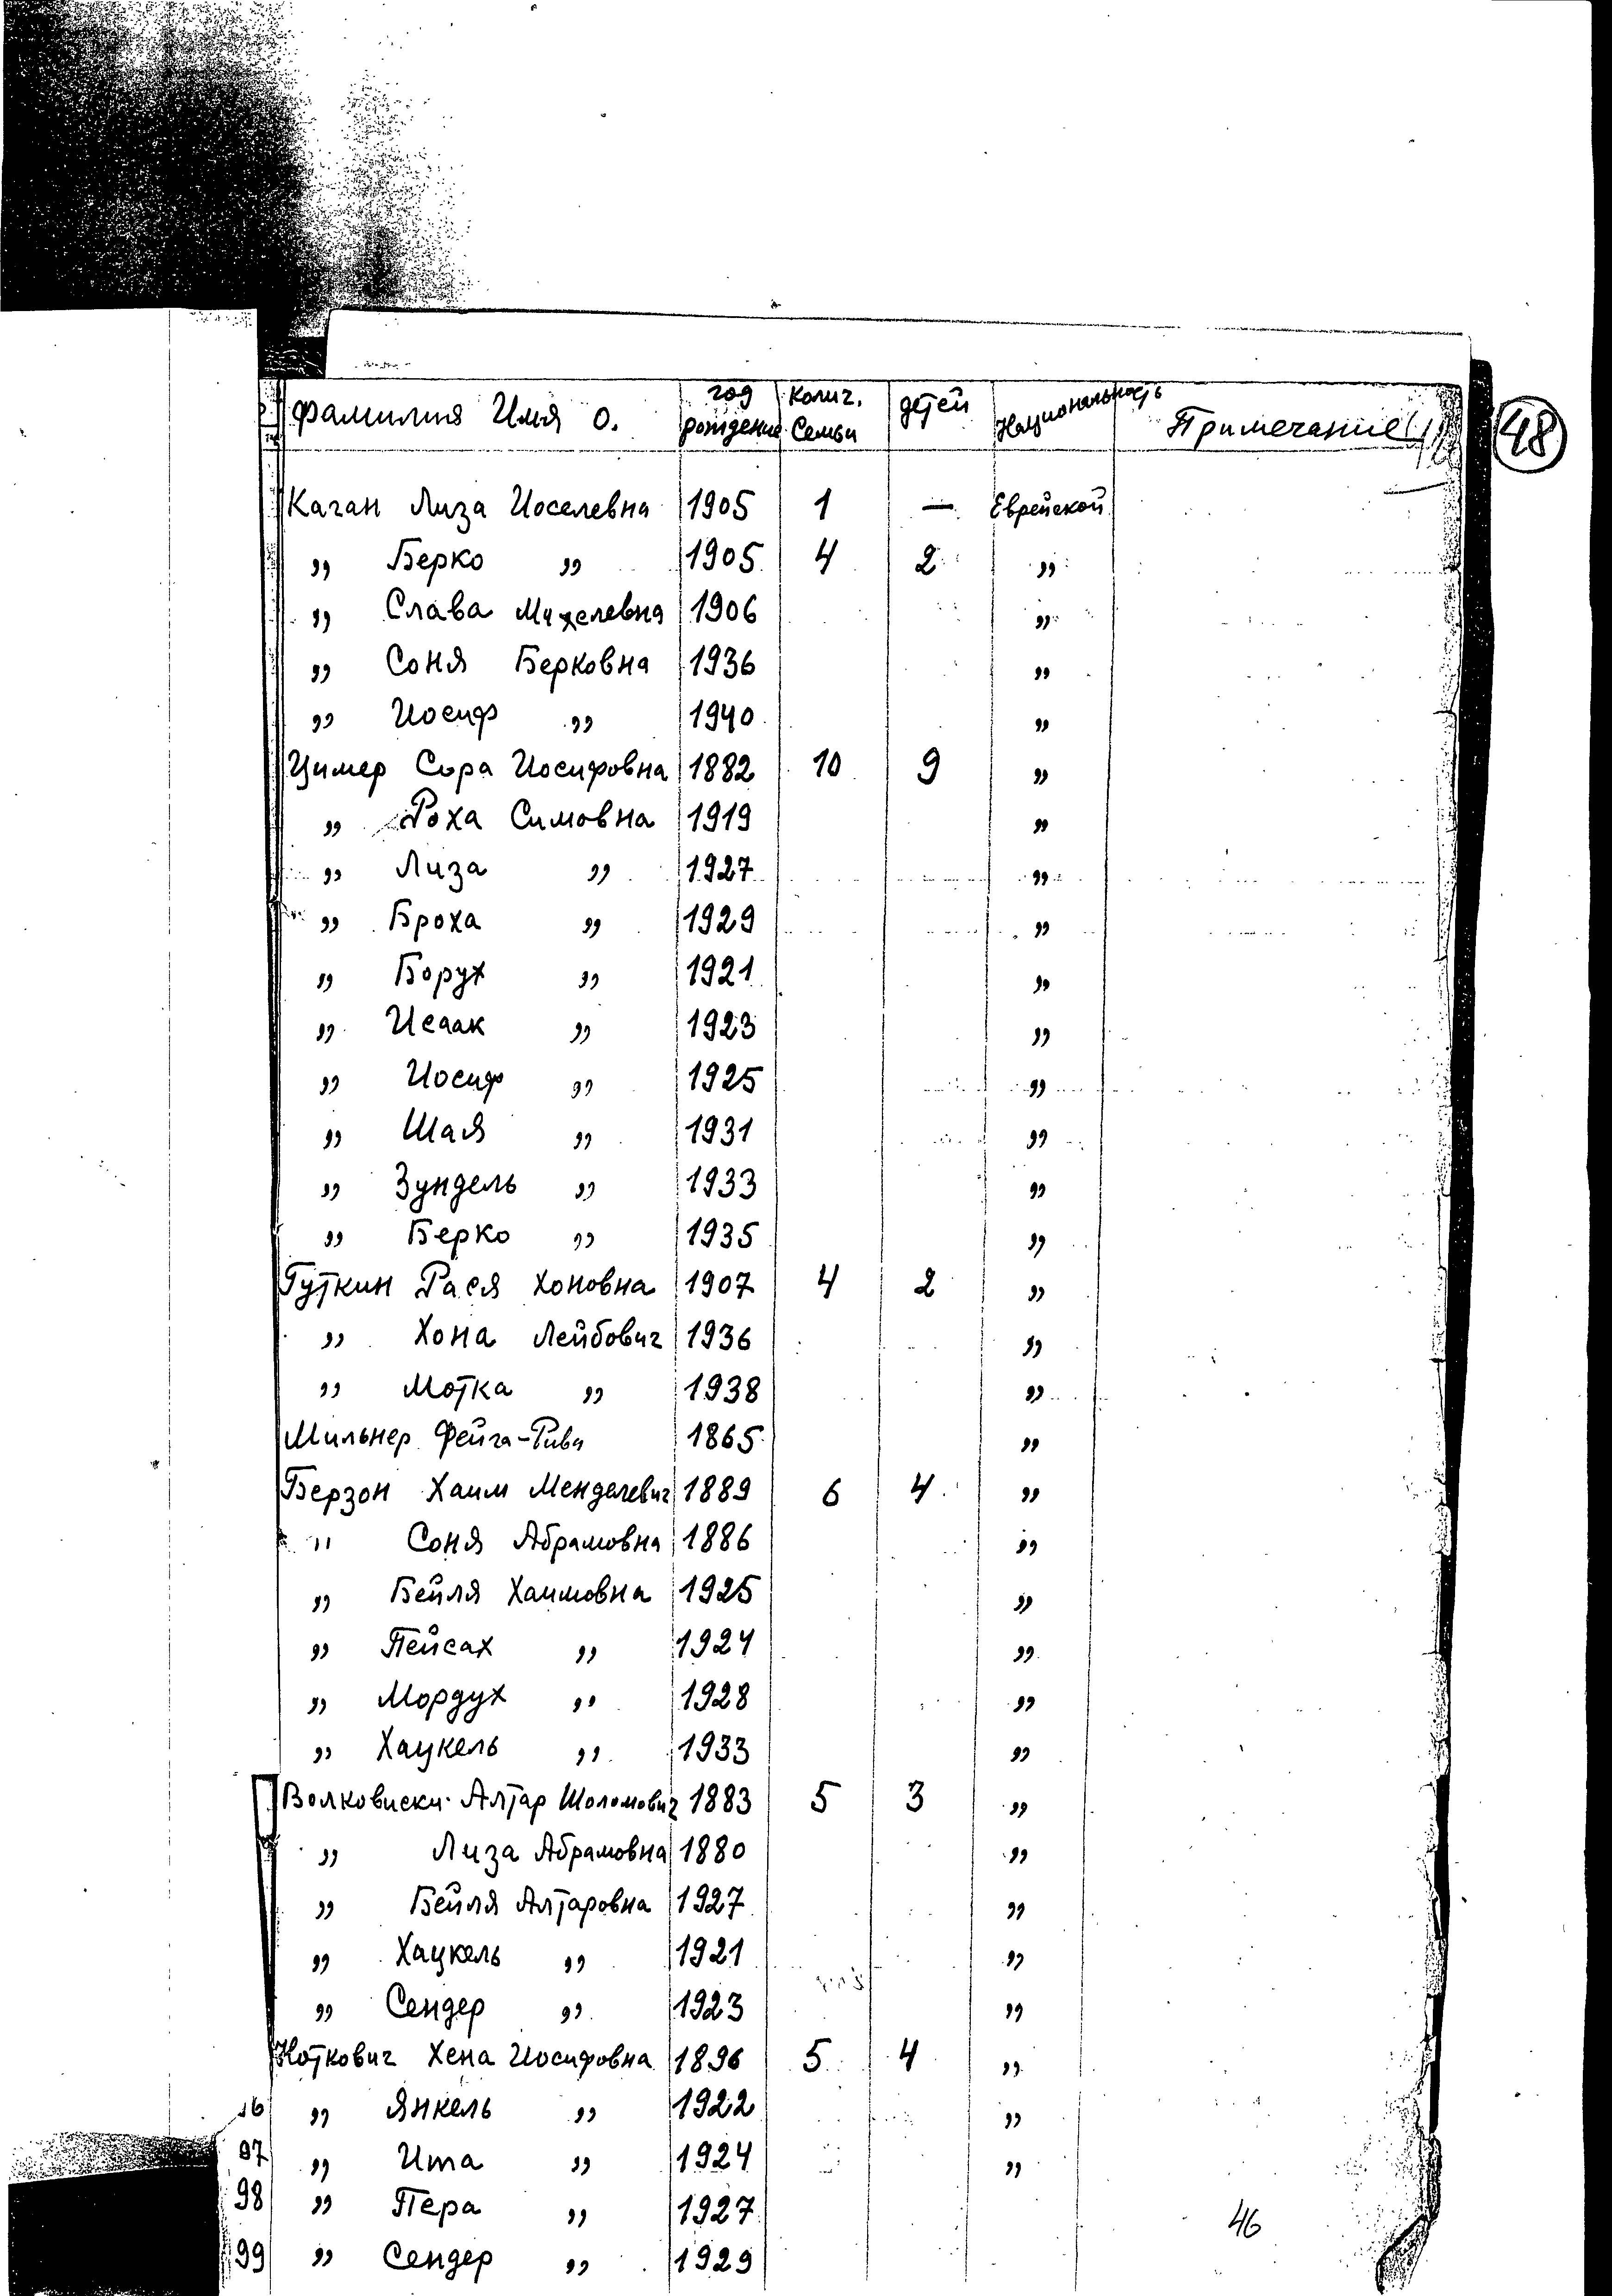 Фамилия Имя О. год рождение Колич. Семьи детей Национальность Примечание
48
Каган Лиза Иоселевна 1905 1 — Еврейской
„ Берко „ 1905 4 2 „
„ Слава Михелевна 1906 „
„ Соня Берковна 1936 „
„ Иосиф „ 1940 „
Цимер Сора Иосифовна 1882 10 9 „
„ Роха Симовна 1919 „
„ Лиза „ 1927 „
„ Броха „ 1929 „
„ Борух „ 1921 „
„ Исаак „ 1923 „
„ Иосиф „ 1925 „
„ Шая „ 1931 „
„ Зундель „ 1933 „
„ Берко „ 1935 „
Гуткин Рася Хоновна 1907 4 2 „
„ Хона Лейбович 1936 „
„ Мотка „ 1938 „
Мильнер Фейга-Рива 1865 „
Берзон Хаим Менделевич 1889 6 4 „
„ Соня Абрамовна 1886 „
„ Бейля Хаимовна 1925 „
„ Пейсах „ 1924 „
„ Мордух „ 1928 „
„ Хацкель „ 1933 „
Волковиски Алтар Шоломович 1883 5 3 „
„ Лиза Абрамовна 1880 „
„ Бейля Алтаровна 1927 „
„ Хацкель „ 1921 „
„ Сендер „ 1923 „
Ноткович Хена Иосифовна 1896 5 4 „
„ Янкель „ 1922 „
97 „ Ита „ 1924 „
98 „ Пера „ 1927
46
99 „ Сендер „ 1929